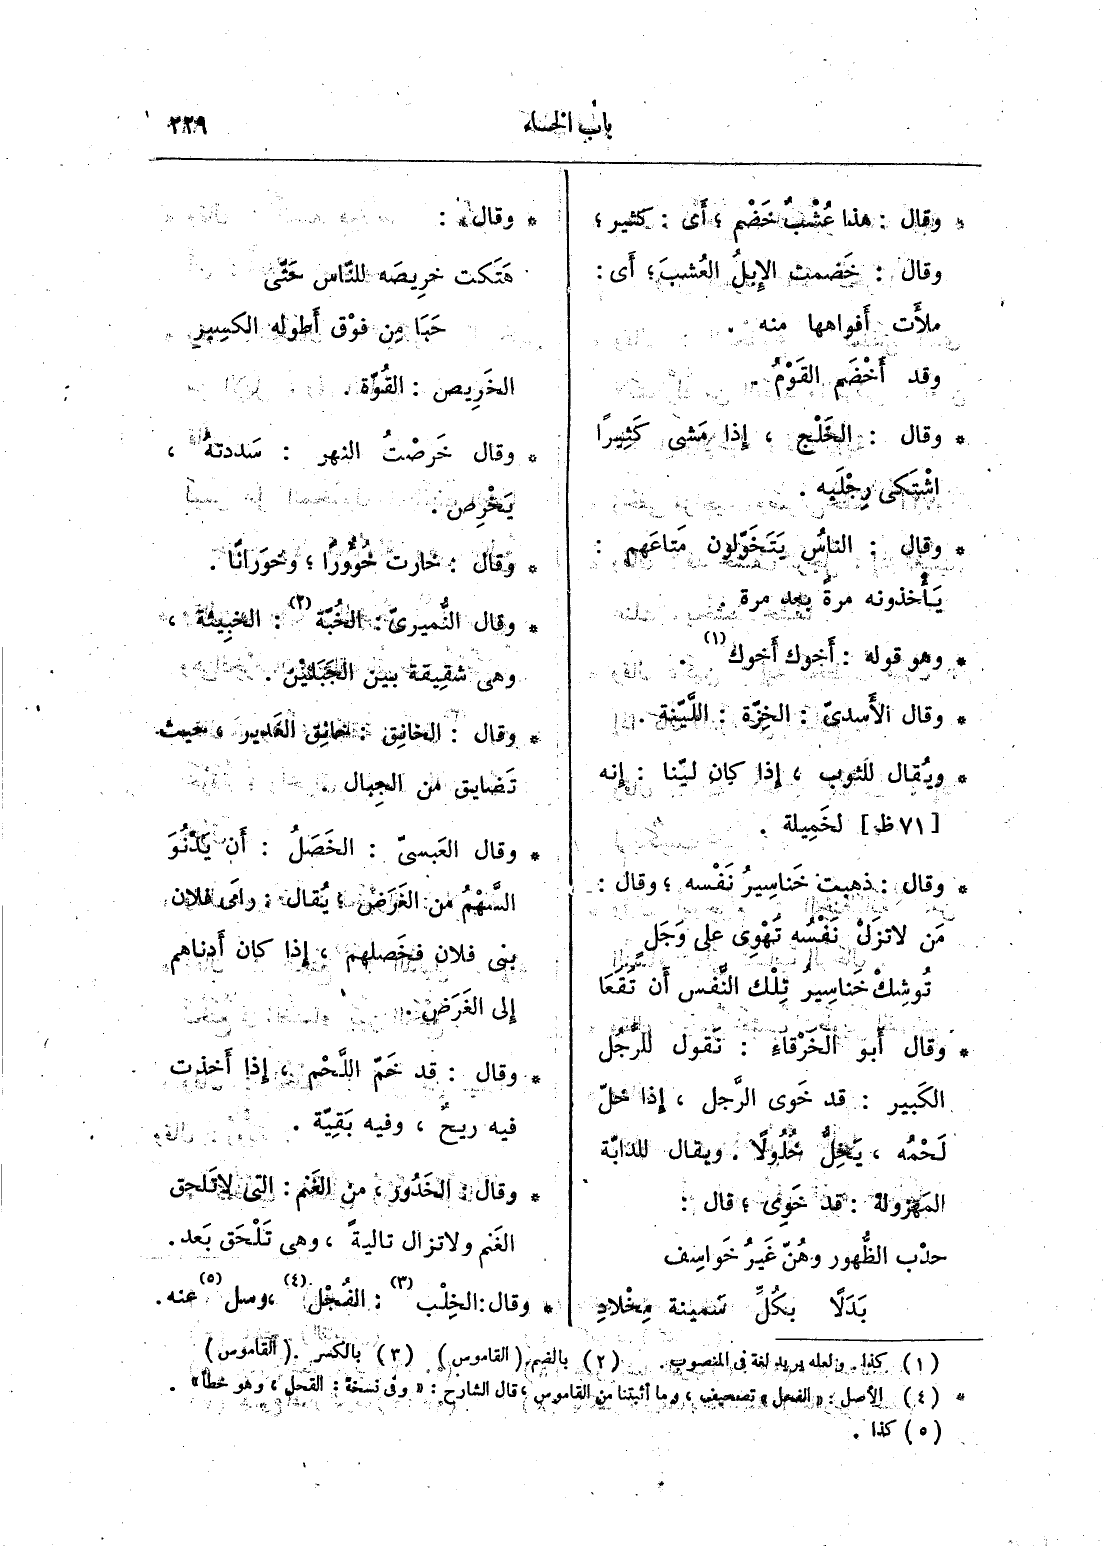 باب الخاء
٢٢٩
* وقال : هذا عُشْبٌ خَضْم ؛ أَى : كثير ؛
وقال : خَضمت الإِبلُ العُشبَ؛ أَى :
ملأَت أَفواهها منه .
وقد أَخْضَم القَوْمُ .
* وقال : الخَلْج ، إِذا مَشى كَثِيرًا
اشْتَكى رِجْلَيه .
* وقال : الناسُ يَتَخَوَّلون مَتاعَهم :
يَأْخذونه مرةً بعد مرة .
* وهو قوله : أَخوك أَخوك (١) .
* وقال الأَسدىّ : الخِزّة : اللَّيّنة .
* ويُقال للثوب ، إِذا كان ليّنا : إِنه
[٧١ظ] لخَمِيلة .
* وقال : ذهبت خَناسِيرُ نَفْسه ؛ وقال :
مَن لاتزَلْ نَفْسُه تَهْوِى على وَجَلٍ
تُوشِكْ خَناسِيرُ تِلْك النَّفس أَن تَقَعَا
* وقال أَبو الخَرْقاءِ : تَقول للرَّجُل
الكَبير : قد خَوى الرَّجل ، إِذا خلّ
لَحْمُه ، يَخِلُّ خُلُولًا . ويقال للدابّة
المَهْزولة : قد خَوِى ؛ قال :
حدْب الظُّهور وهُنّ غَيرُ خَواسِف
بَدَلًا بكُلِّ سَمينة مِخْلادِ
* وقال :
هَتَكت خرِيصَه للنّاس حَتَّى
حَبَا مِن فوْق أَطوله الكسِيرِ
الخَرِيص : القُوّة .
* وقال خَرصْتُ النهر : سَددتهُ ،
يَخْرِص .
* وقال : خارت خُوُورًا ؛ وخوَرانًا .
* وقال النُّميرىّ : الخُبّة (٢) : الخبِيثة ،
وهى شقِيقة بين الجَبَلَيْن .
* وقال : الخانِق : خانِق الغَدير ، حيث
تَضايق من الجِبال .
* وقال العَبسىّ : الخَصَلُ : أَن يَدْنُوَ
السَّهْمُ من الغَرَض ؛ يُقال : رامَى فلان
بنى فلان فخَصلهم ، إِذا كان أَدناهم
إِلى الغَرَض .
* وقال : قد خَمّ اللَّحْم ، إِذا أَخذت
فيه ريحٌ ، وفيه بَقِيّة .
* وقال : الخَدُور ، من الغَنم : التى لاتَلحق
الغَنم ولاتزال تاليةً ، وهى تَلْحَق بَعد .
* وقال: الخِلْب (٣) : الفُجْل (٤) ،وسل (٥) عنه.
(١) كذا . ولعله يريد لغة فى المنصوب . (٢) بالضم . (القاموس) (٣) بالكسر . (القاموس)
(٤) الأصل : « الفحل » تصحيف ، وما أثبتنا من القاموس ؛ قال الشارح : « وفى نسخة : الفحل ، وهو خطأ » .
(٥) كذا .